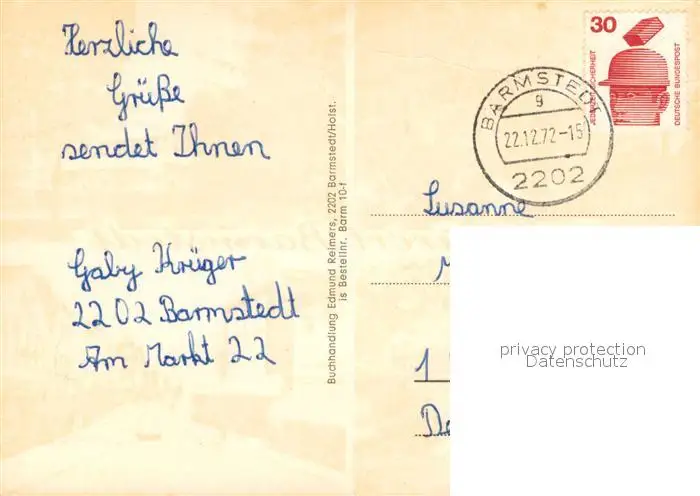 Herzliche
Grüße
sendet Ihnen
Gaby Krüger
2202 Barmstedt
Am Markt 22
Buchhandlung Edmund Reimers, 2202 Barmstedt/Holst.
is Bestellnr. Barm 10-f
30
JEDERZEIT SICHERHEIT
DEUTSCHE BUNDESPOST
BARMSTEDT
g
22.12.72-15
2202
Susanne
M
1
De
privacy protection
Datenschutz